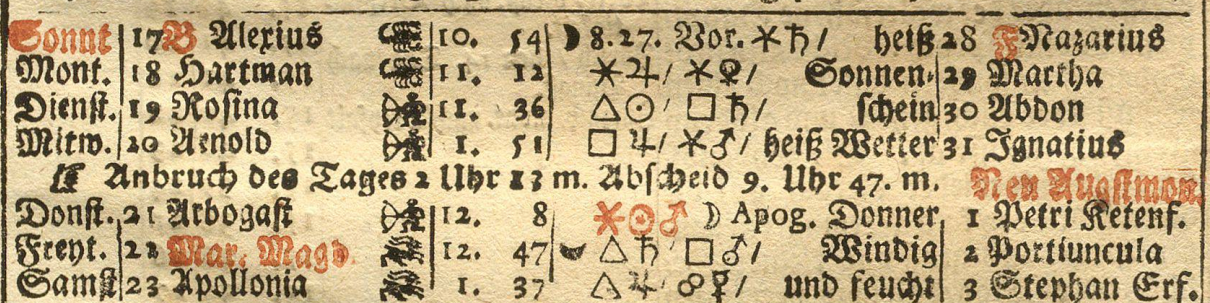 Sonnt 17 B Alexius 10. 54 ☽ 8.27. Vor. ⚹ ♄ / heiß 28 F Nazarius
Mont. 18 Hartman 11. 12 ⚹ ♃ / ⚹ ♀ / Sonnen- 29 Martha
Dienst. 19 Rosina ♐ 11. 36 △ ☉ / □ ♄ / schein 30 Abdon
Mitw. 20 Arnold ♐ 1. 51 □ ♃ / ⚹ ♂ / heiß Wetter 31 Ignatius
Anbruch des Tages 2 Uhr 13 m. Abscheid 9. Uhr 47. m. Neu Augstmon.
Donst. 21 Arbogast ♐ 12. 8 ⚹ ☉ ♂ ☽ Apog. Donner 1 Petri Ketenf.
Freyt. 22 Mar. Magd. 12. 47 △ ♄ / □ ♂ / Windig 2 Portiuncula
Samst 23 Apollonia 1. 37 △ ♃ / ☍ ☿ / und feucht 3 Stephan Erf.